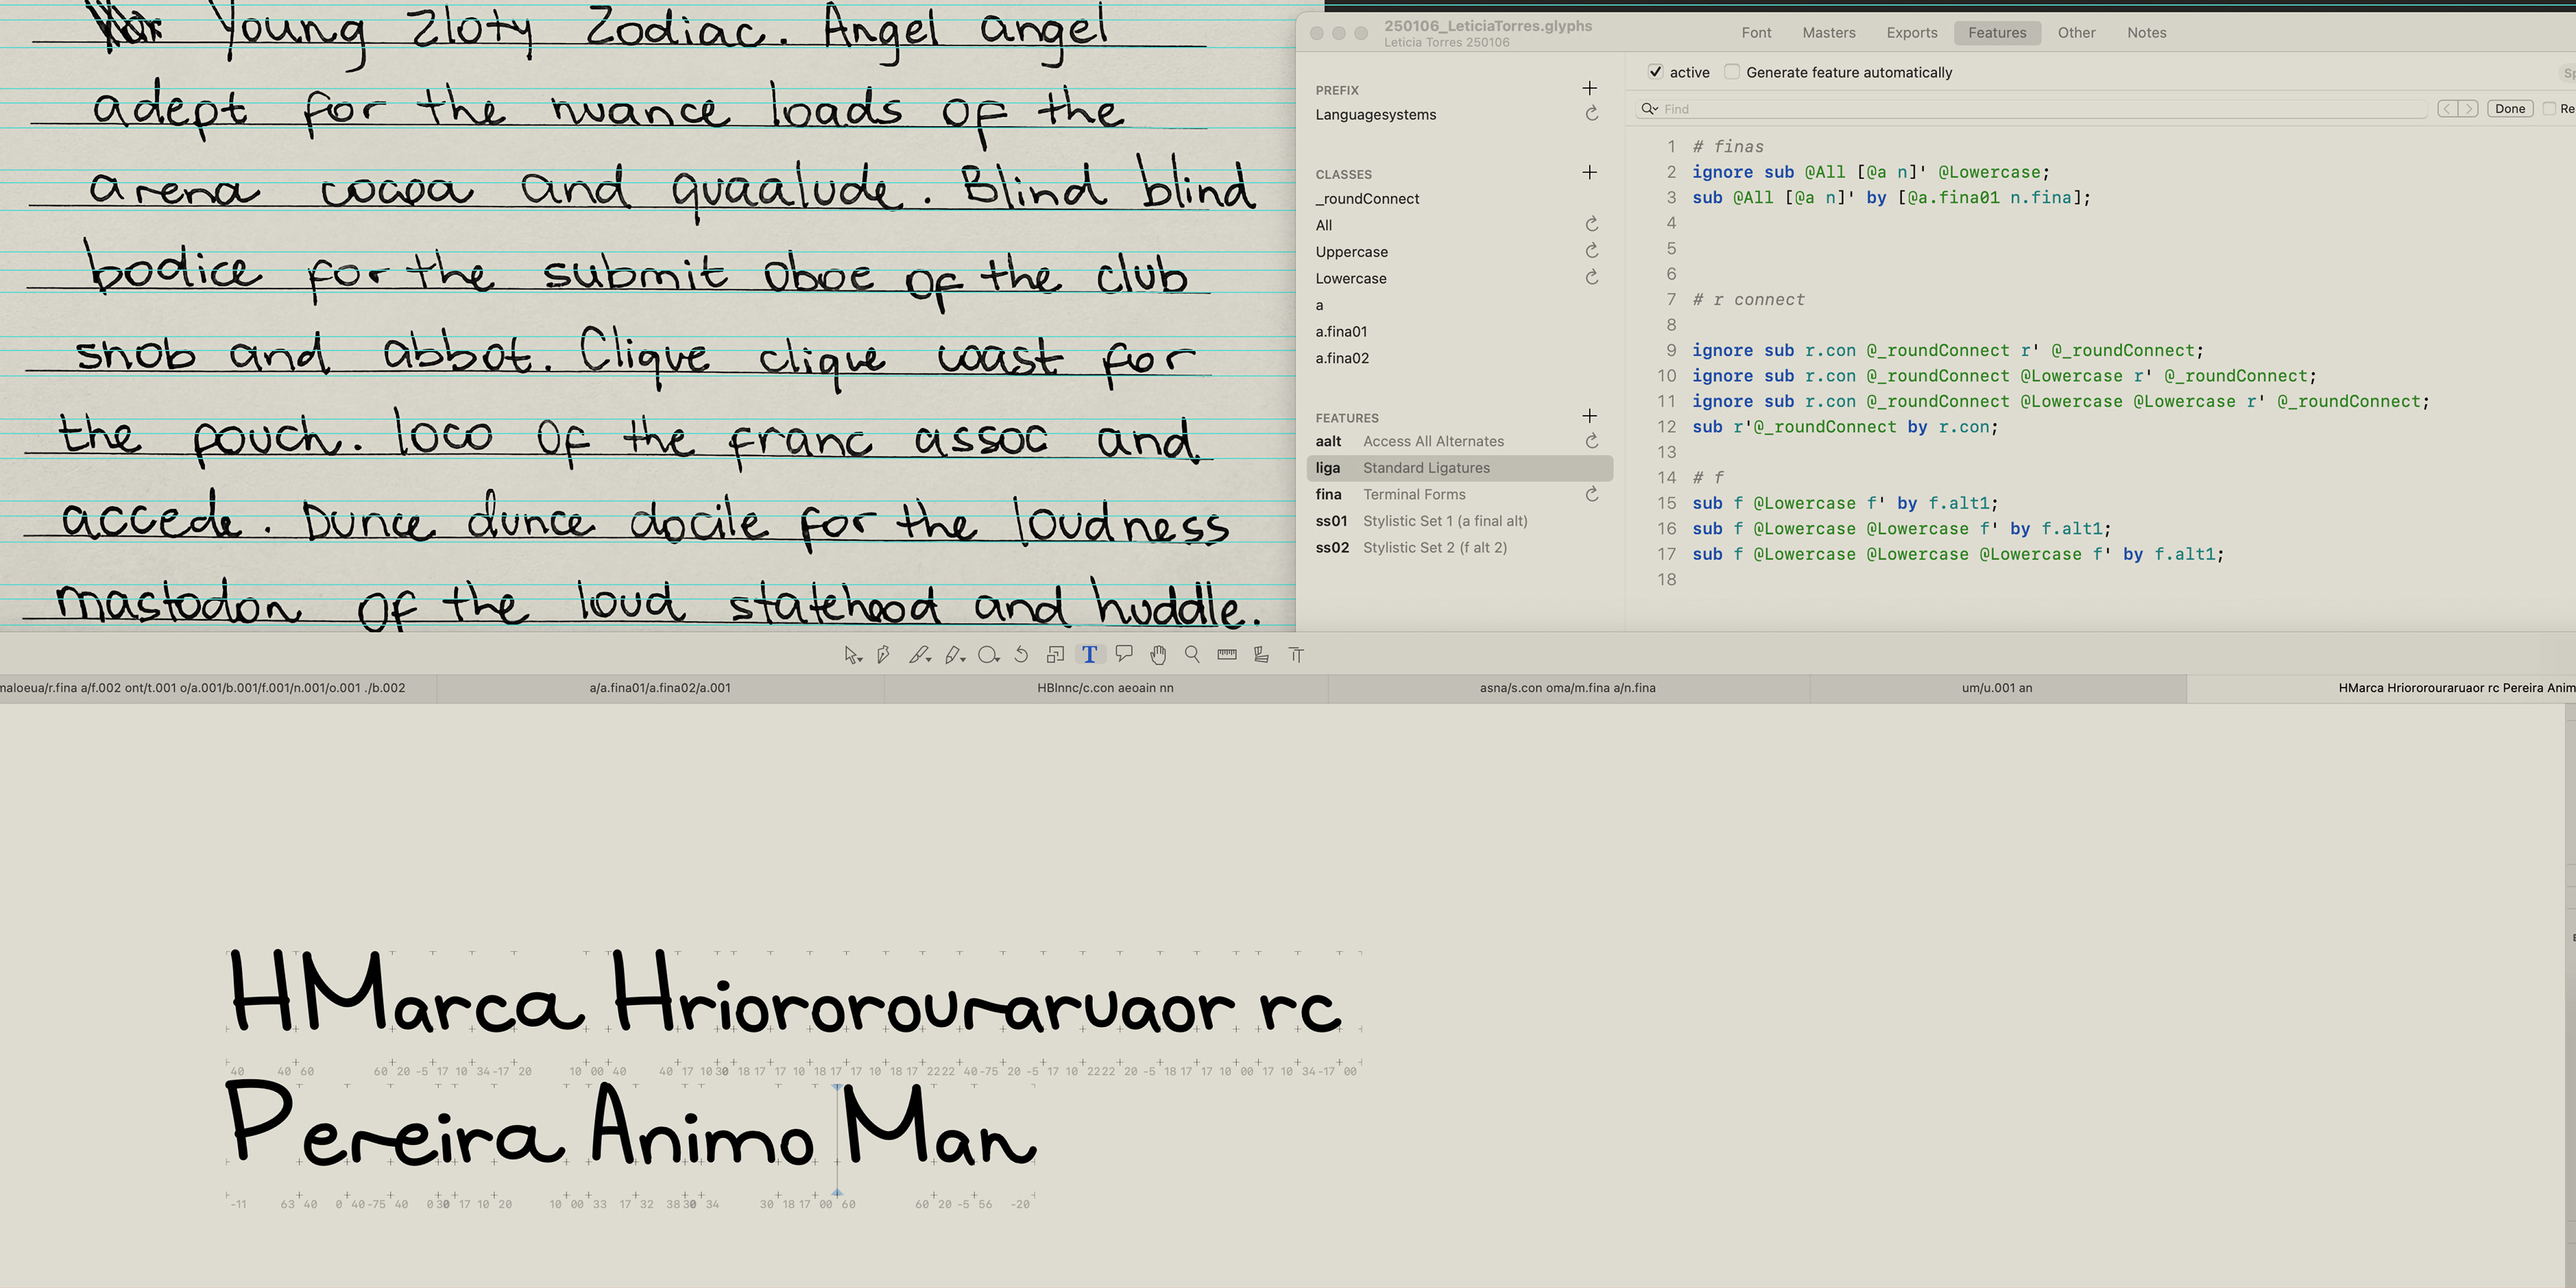 Young Zloty Zodiac. Angel angel
adept for the nuance loads of the
arena cocoa and quaalude. Blind blind
bodice for the submit oboe of the club
snob and abbot. Clique clique coast for
the pouch. loco of the franc assoc and
accede. Dunce dunce docile for the loudness
mastodon of the loud statehood and huddle.
250106_LeticiaTorres.glyphs
Leticia Torres 250106
Font Masters Exports Features Other Notes
active Generate feature automatically
Find Done Re
PREFIX
Languagesystems
CLASSES
_roundConnect
All
Uppercase
Lowercase
a
a.fina01
a.fina02
FEATURES
aalt Access All Alternates
liga Standard Ligatures
fina Terminal Forms
ss01 Stylistic Set 1 (a final alt)
ss02 Stylistic Set 2 (f alt 2)
1 # finas
2 ignore sub @All [@a n]' @Lowercase;
3 sub @All [@a n]' by [@a.fina01 n.fina];
4
5
6
7 # r connect
8
9 ignore sub r.con @_roundConnect r' @_roundConnect;
10 ignore sub r.con @_roundConnect @Lowercase r' @_roundConnect;
11 ignore sub r.con @_roundConnect @Lowercase @Lowercase r' @_roundConnect;
12 sub r'@_roundConnect by r.con;
13
14 # f
15 sub f @Lowercase f' by f.alt1;
16 sub f @Lowercase @Lowercase f' by f.alt1;
17 sub f @Lowercase @Lowercase @Lowercase f' by f.alt1;
18
T
naloeua/r.fina a/f.002 ont/t.001 o/a.001/b.001/f.001/n.001/o.001 ./b.002
a/a.fina01/a.fina02/a.001
HBlnnc/c.con aeoain nn
asna/s.con oma/m.fina a/n.fina
um/u.001 an
HMarca Hriororouraruaor rc Pereira Anim
HMarca Hriororouraruaor rc
40 40 60 60 20 -5 17 10 34 -17 20 10 00 40 40 17 10 30 18 17 17 10 18 17 17 10 18 17 22 22 40 -75 20 -5 17 10 22 22 20 -5 18 17 17 10 00 17 10 34 -17 00
Pereira Animo Man
-11 63 40 0 40 -75 40 0 30 17 10 20 10 00 33 17 32 38 30 34 30 18 17 00 60 60 20 -5 56 -20